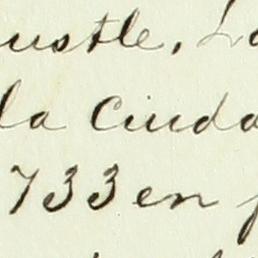 ustle, L
la Ciuda
733 en